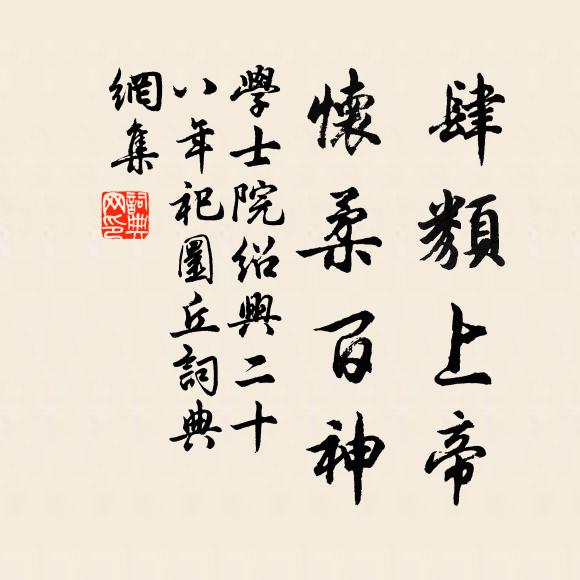 肆類上帝
懷柔百神
學士院紹興二十
八年祀圜丘詞典
網集
詞典
网印